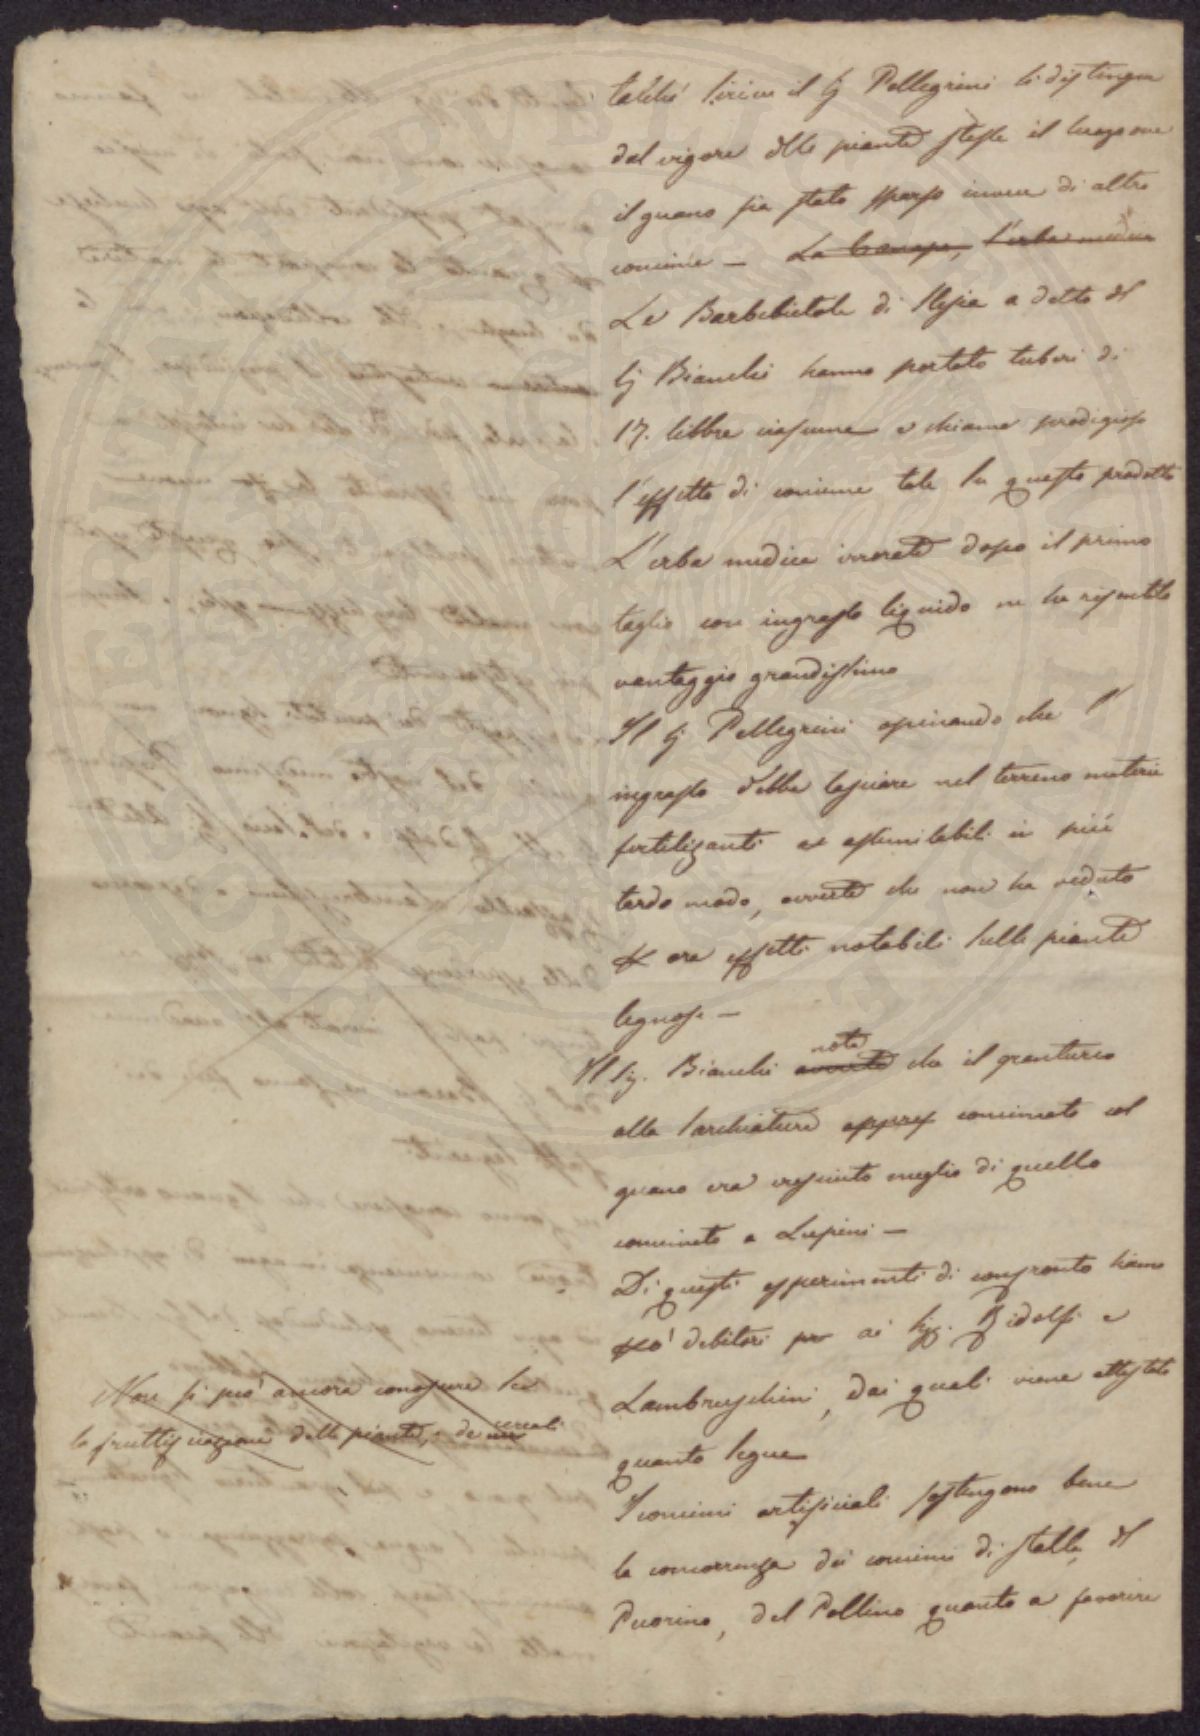 talchè scrive il Sig Pellegrini si distingue
dal vigore delle piante stesse il luogo ove
il guano sia stato sparso invece di altro
concime — La Canapa, L'erba medica
Le Barbebietole di Slesia a detto del
Sig Bianchi hanno portato tuberi di
17. libbre ciascuna e chiama prodigioso
l'effetto di concime tale su questo prodotto
L'erba medica irrorata dopo il primo
taglio con ingrasso liquido ne ha risentito
vantaggio grandissimo
Il Sig Pellegrini opinando che l'
ingrasso debba lasciare nel terreno materie
fertilizanti ed assimilabili in più
tardo modo, avverte che non ha veduto
ora effetti notabili sulle piante
legnose —
Il Sig. Bianchi avverte note che il granturco
alla sarchiatura appres concimato col
guano era cresciuto meglio di quello
concimato a Lupini —
Di questi esperimenti di confronto siamo
debitori per ai Sigg. Ridolfi e
Lambruschini, dai quali viene attestato
quanto segue
I concimi artificiali sostengono bene
la concorrenza dei concimi di stalla, del
Pecorino, del Pollino quanto a favorire
Non si può ancora conoscere se
la fruttificazione delle piante, e de cereali